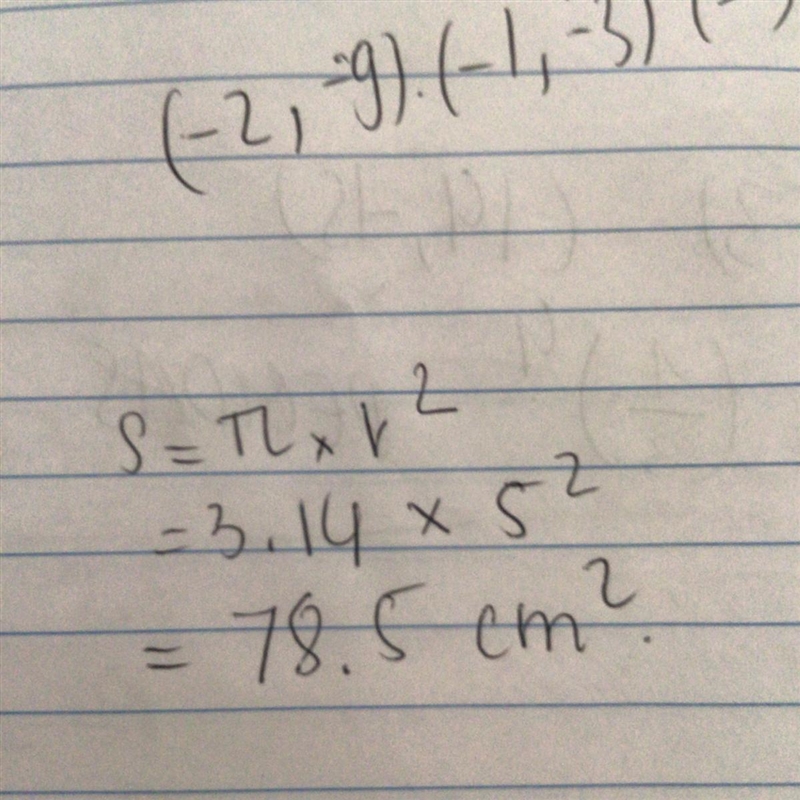 (-2, -9).(-1, -3) (-
S = π × r²
= 3.14 × 5²
= 78.5 cm².